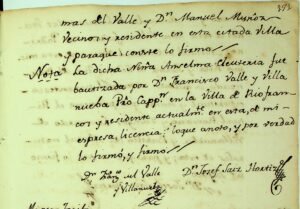 393
mas del Valle y Dn. Manuel Muñoz
vecino y residente en esta citada Villa
y paraque conste lo firmo
Nota La dicha Niña Anselma Eleuteria fue
bautizada por Dn. Francisco Valle y Villa
nueba Pro Cappn. en la Villa de Riofran
cos y residente actualmte. en esta, de mi
espresa, licencia: loque anoto, y por verdad
lo firmó, y firmo
Dn. Franco. del Valle
y Villanueba
Dn. Josef Saez Hortiz